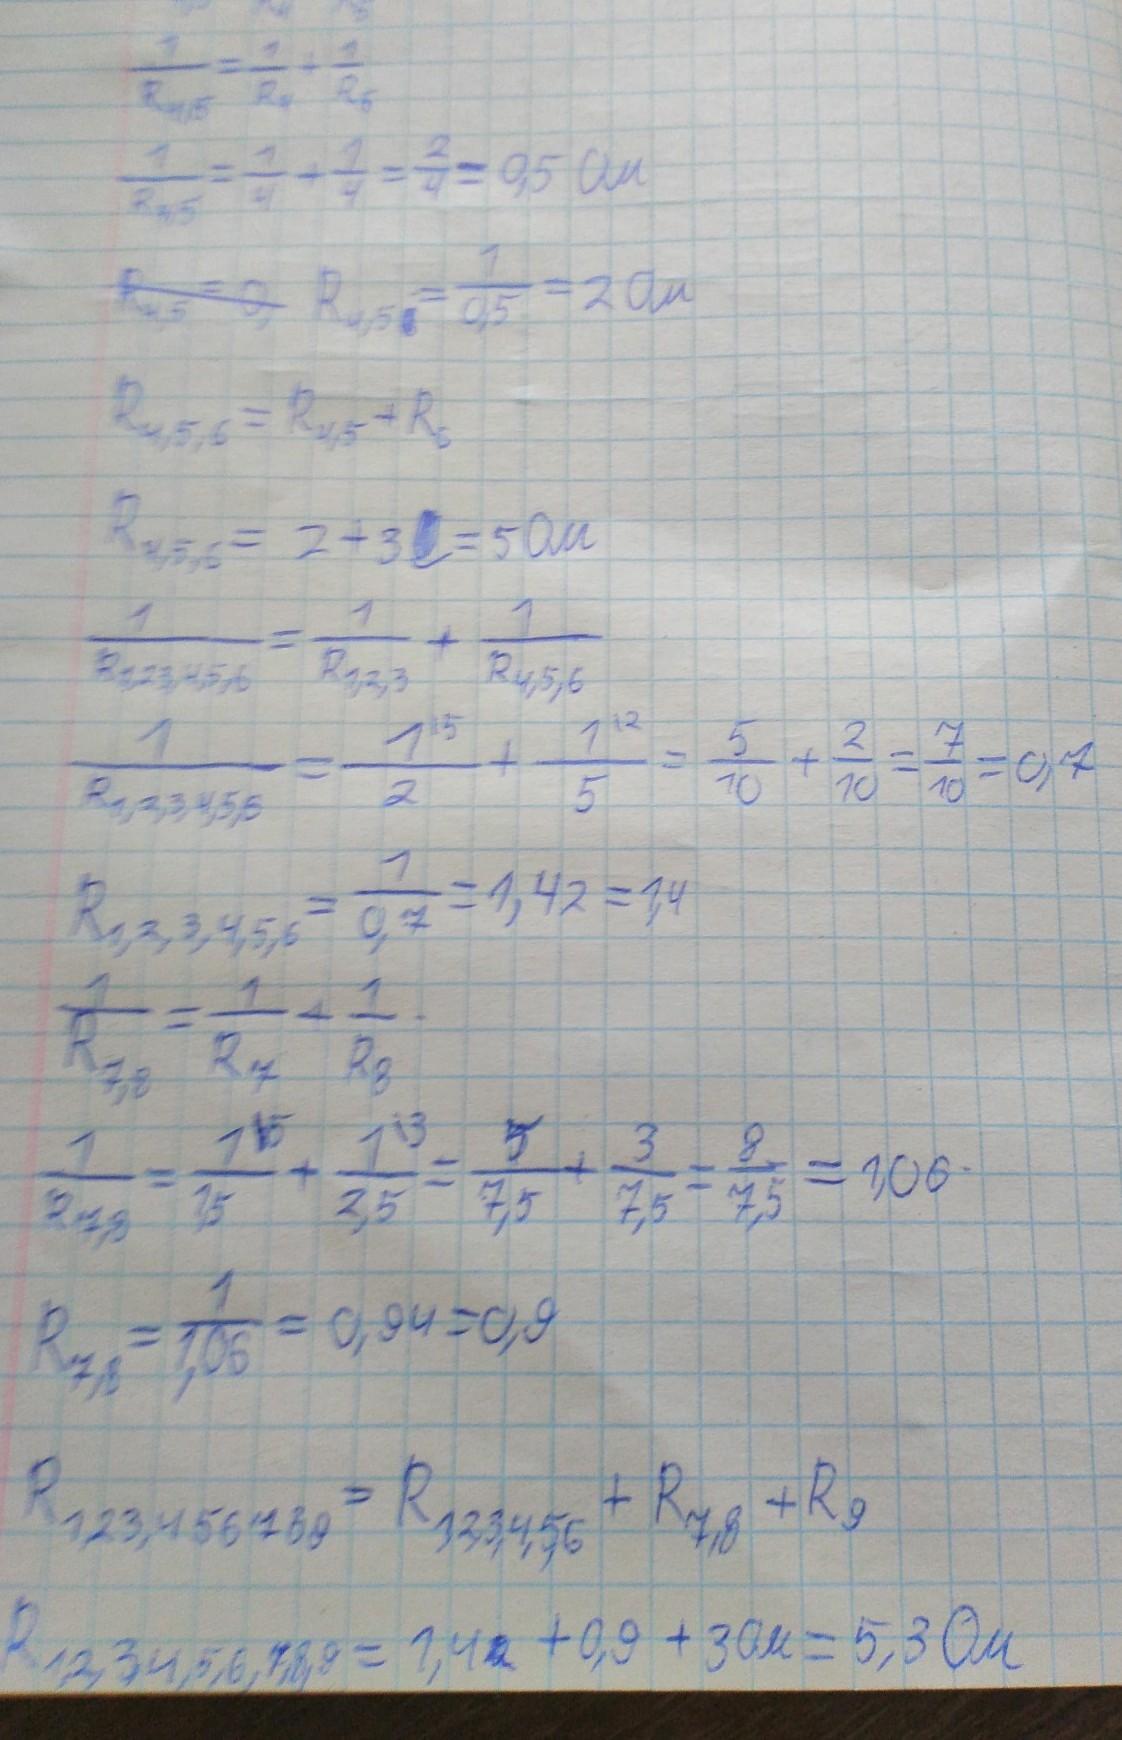 1/R4,5 = 1/R4 + 1/R5
1/R4,5 = 1/4 + 1/4 = 2/4 = 0,5 Ом
R4,5 = 0, R4,5 = 1/0,5 = 2 Ом
R4,5,6 = R4,5 + R6
R4,5,6 = 2 + 3 = 5 Ом
1/R1,2,3,4,5,6 = 1/R1,2,3 + 1/R4,5,6
1/R1,2,3,4,5,6 = 1\5/2 + 1\2/5 = 5/10 + 2/10 = 7/10 = 0,7
R1,2,3,4,5,6 = 1/0,7 = 1,42 = 1,4
1/R7,8 = 1/R7 + 1/R8
1/R7,8 = 1\5/1,5 + 1\3/2,5 = 5/7,5 + 3/7,5 = 8/7,5 = 1,06
R7,8 = 1/1,06 = 0,94 = 0,9
R1,2,3,4 5 6 7 8 9 = R1,2,3,4,5,6 + R7,8 + R9
R1,2,3,4,5,6,7,8,9 = 1,4 + 0,9 + 3 Ом = 5,3 Ом